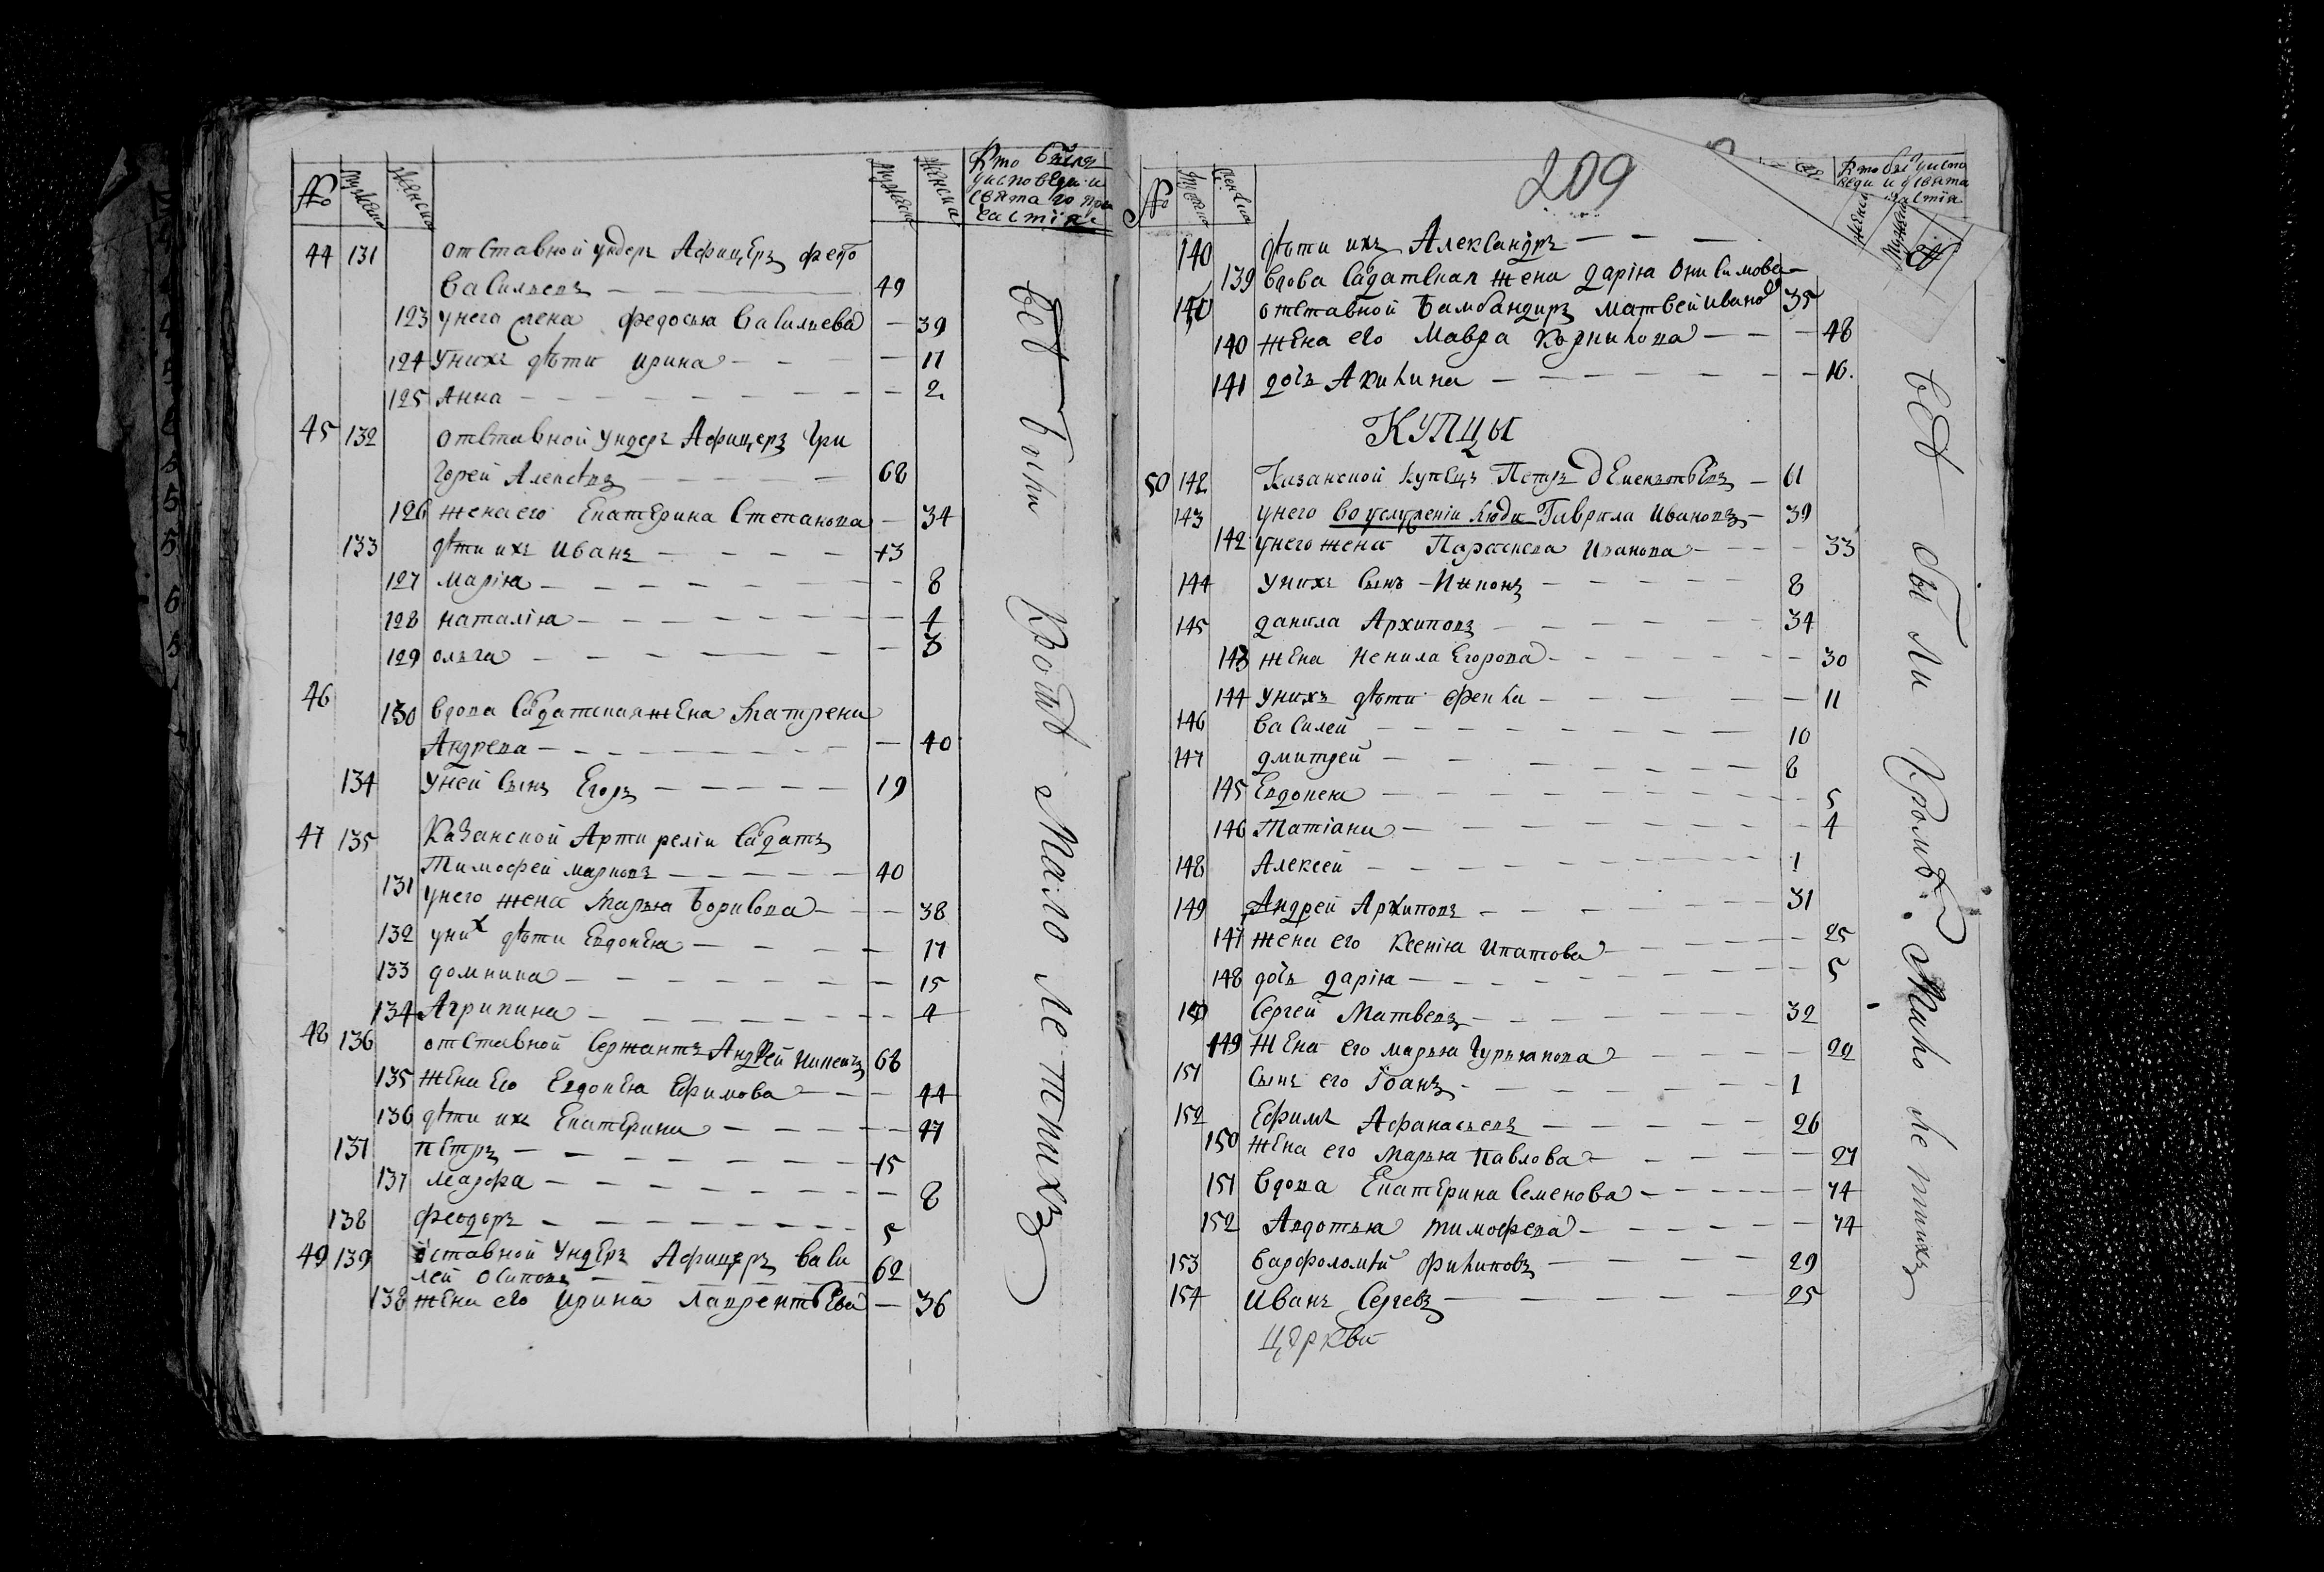 № мужеска женска мужеска женска Кто былъ
у исповеди и
святаго при
частия
44 131 отставной ундеръ Афицеръ федо
Васильевъ — 49
123 унего жена федосья Васильева — 39
124 унихъ дѣти ирина — 11
125 Анна — 2
45 132 отставной ундеръ Афицеръ Гри
горей Алексѣвъ — 68
126 жена его Екатерина Степанова — 34
133 дѣти ихъ иванъ — 13
127 марія — 8
128 наталія — 4
129 ольга — 3
46
130 вдова салдатская жена Матрена
Андрева — 40
134 уней сынъ Егоръ — 19
47 135 Казанской Артирелїи Салдатъ
Тимофей марковъ — 40
131 унего жена Марья Борисова — 38
132 унихъ дѣти Евдокея — 17
133 домника — 15
134 Агрипина — 4
48 136 отставной Сержантъ Андрей 68
135 жена Его Евдокея Ефимова — 44
136 дѣти ихъ Екатерина — 17
137 петръ — 15
137 марфа — 8
138 феодоръ — 5
49 139 оставной ундеръ Афицеръ васи
лей осиповъ — 62
138 жена его ирина лаврентьева — 36
всѣ были Кромѣ малолетнихъ
209
№ мужеска женска Кто былъ уиспо
веди и усвята
частїя
женска мужеска
140 дѣти ихъ Александръ —
139 вдова Салдатская жена дарія онисимова —
141 отставной Бамбандиръ матвей иванов 35
140 жена его мавра Корнилова — 48
141 доч Акилина — 16.
КУПЦЫ
50 142 Казанской купецъ Петръ дементьевъ — 61
143 унего во услужении люди Гаврила ивановъ — 39
142 унего жена Параскева иванова — 33
144 унихъ сынъ — 8
145 данила Архиповъ — 34
143 жена ненила Егорова — 30
144 унихъ дѣти фекла — 11
146 василей — 10
147 дмитрей — 8
145 Евдокея — 5
146 татіана — 4
148 Алексей — 1
149 Андрей Архиповъ — 31
147 жена его Ксенія ипатова — 25
148 доч дарія — 5
150 Сергей матвевъ — 32
149 жена его марья гурьянова — 22
151 сынъ его Іоанъ — 1
152 Ефимъ Афанасьевъ — 26
150 жена его марья павлова — 27
151 вдова Екатерина Семенова — 74
152 Авдотья тимофева — 74
153 варфоломѣй филиповъ — 29
154 иванъ Сергевъ — 25
церкви
всѣ были Кромѣ. Мало летнихъ